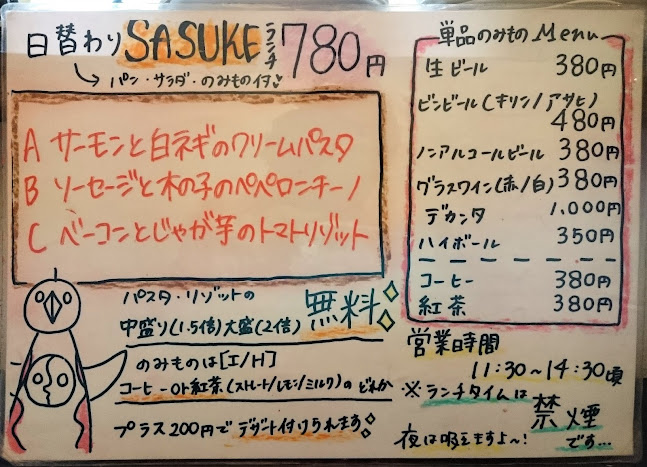 日替わりSASUKEランチ780円
パン・サラダ・のみもの付
A サーモンと白ネギのクリームパスタ
B ソーセージと木の子のペペロンチーノ
C ベーコンとじゃが芋のトマトリゾット
パスタ・リゾットの
中盛り(1.5倍)大盛(2倍) 無料
のみものは[I/H]
コーヒーor紅茶(ストレート/レモン/ミルク)の どれか
プラス200円で デザート付けられます
単品のみもの Menu
生ビール 380円
ビンビール(キリン/アサヒ)
480円
ノンアルコールビール 380円
グラスワイン(赤/白) 380円
デカンタ 1,000円
ハイボール 350円
コーヒー 380円
紅茶 380円
営業時間
11:30〜14:30頃
※ランチタイムは
禁煙
です…
夜は吸えますよ〜!